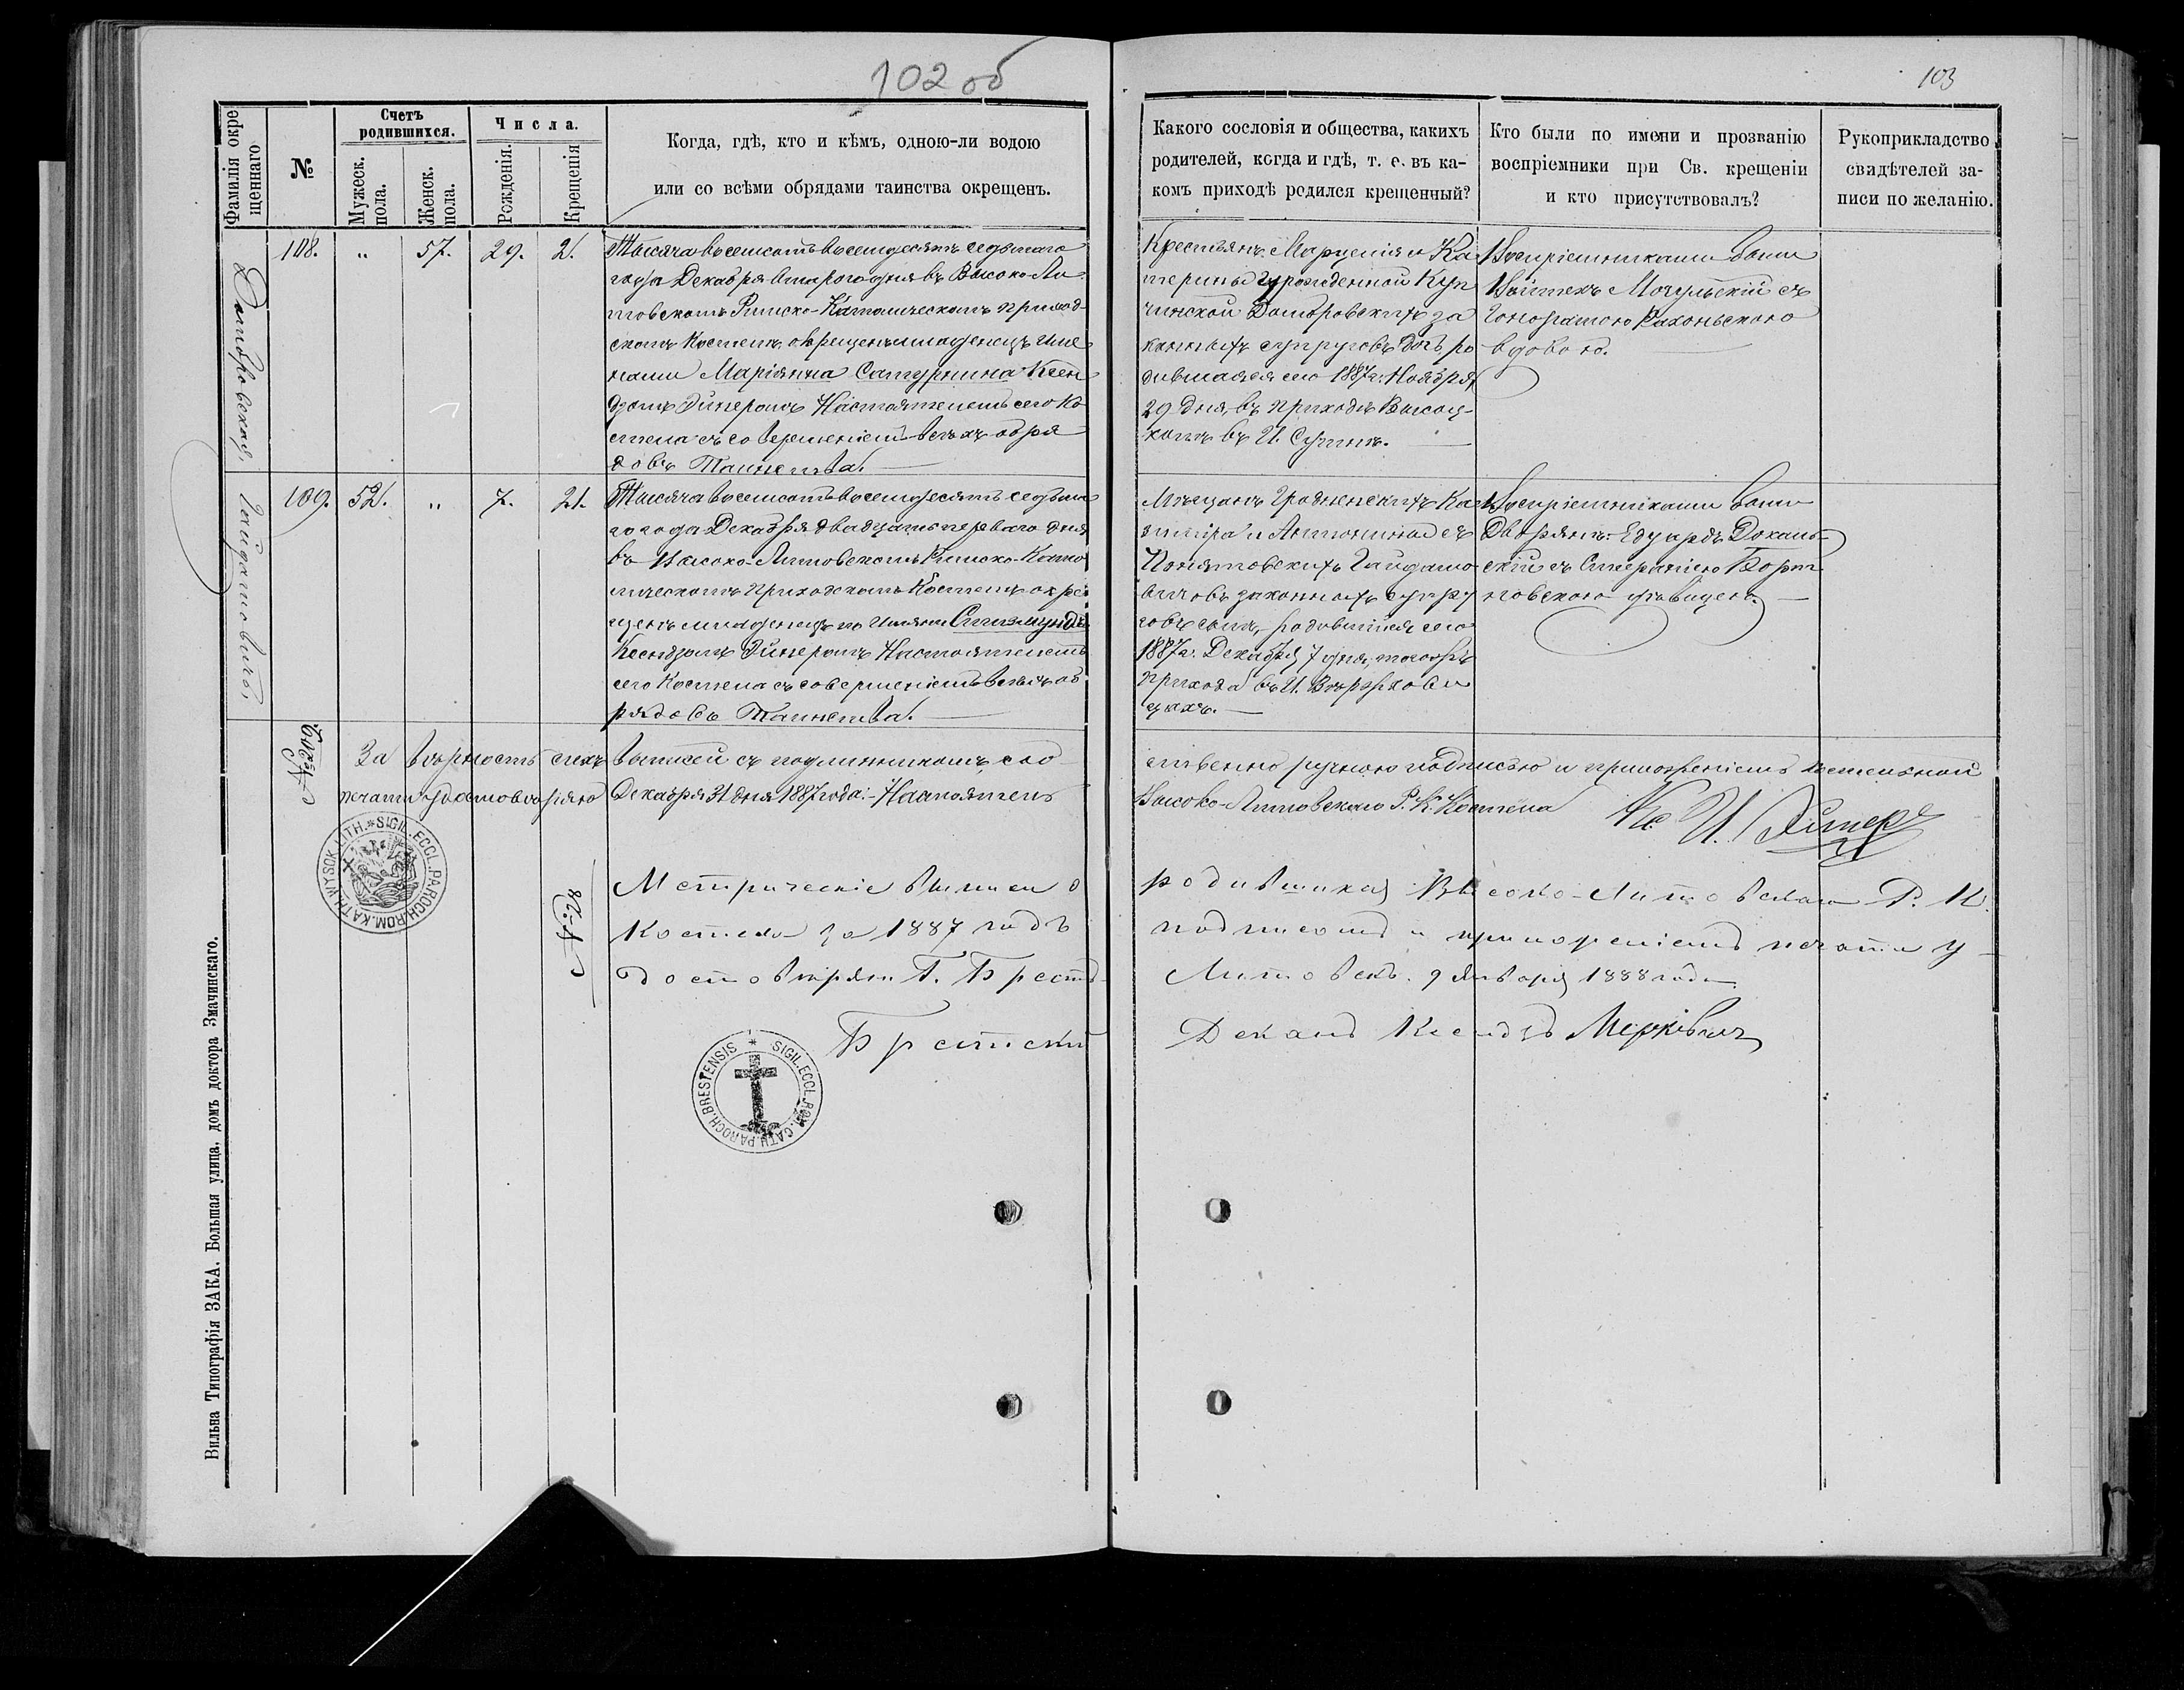 102 об
103
Фамилія окре
щеннаго
№
Счетъ
родившихся.
Мужеск.
пола.
Женск.
пола.
Числа.
Рожденія.
Крещенія
Когда, гдѣ, кто и кѣмъ, одною-ли водою
или со всѣми обрядами таинства окрещенъ.
Какого сословія и общества, какихъ
родителей, когда и гдѣ, т. е. въ ка-
комъ приходѣ родился крещенный?
Кто были по имени и прозванію
воспріемники при Св. крещеніи
и кто присутствовалъ?
Рукоприкладство
свидѣтелей за-
писи по желанію.
Домбровская.
108. " 57. 29. 2.
Тысяча восемсотъ восемдесятъ седьмаго
года Декабря втораго дня въ Высоко-Ли-
товскомъ Римско-Католическомъ приход-
скомъ Костелѣ окрещенъ младенецъ име
нами Маріянна Сатурнина Ксен
дзомъ Эйнеромъ Настоятелемъ сего Ко
стела съ совершеніемъ всѣхъ обря
довъ Таинства.
Крестьянъ Марцелія и Ка
терины урожденной Куп
чинской Домбровскихъ за
конныхъ супруговъ дочь, ро
дившаяся сего 1887 г. Ноября
29 дня, въ приходѣ Высоц-
комъ въ И.
Воспріемниками были
Войтехъ Мочульскій съ
Гоноратою
вдовою.
Гайдамовичъ.
109. 52. " 7. 21.
Тысяча восемсотъ восемдесятъ седьма
го года Декабря двадцать перваго дня
въ Высоко-Литовскомъ Римско-Като
лическомъ Приходскомъ Костелѣ окре
щенъ младенецъ по имяни Сигизмундъ
Ксендзомъ Эйнеромъ Настоятелемъ
сего Костела съ совершеніемъ всѣхъ об
рядовъ Таинства.
Мѣщанъ Гродненскихъ Ка
зиміра и Антонины съ
Понятовскихъ Гайдамо
вичовъ законныхъ супру
говъ сынъ, родившійся сего
1887 г. Декабря 7 дня, тогожъ
прихода въ И.
цахъ.
Воспріемниками были
Дворянъ: Едуардъ
скій съ
новскою дѣвицею.
№
За вѣрность сихъ выписей съ подлинникомъ, соб
ственно ручною подписью и приложеніемъ костельной
печати удостовѣряю Декабря 31 дня 1887 года: - Настоятель
Высоко-Литовскаго Р. К. Костела Кс. И. Эйнеръ
SIGIL. ECCL. PAROCH. ROM. KATH. WYSOK. LITH. *
№ 28
Метрическіе выписи о родившихся Высоко-Литовскаго Р. К.
Костела за 1887 годъ подписомъ и приложеніемъ печати у-
достовѣряю Г. Брестъ-Литовскъ. 9 Января 1888 года.
Брестскій Деканъ Ксендзъ
SIGIL. ECCL. ROM. CATH. PAROCH. BRESTENSIS *
Вильна Типографія ЗАКА. Большая улица, домъ доктора Змачинскаго.